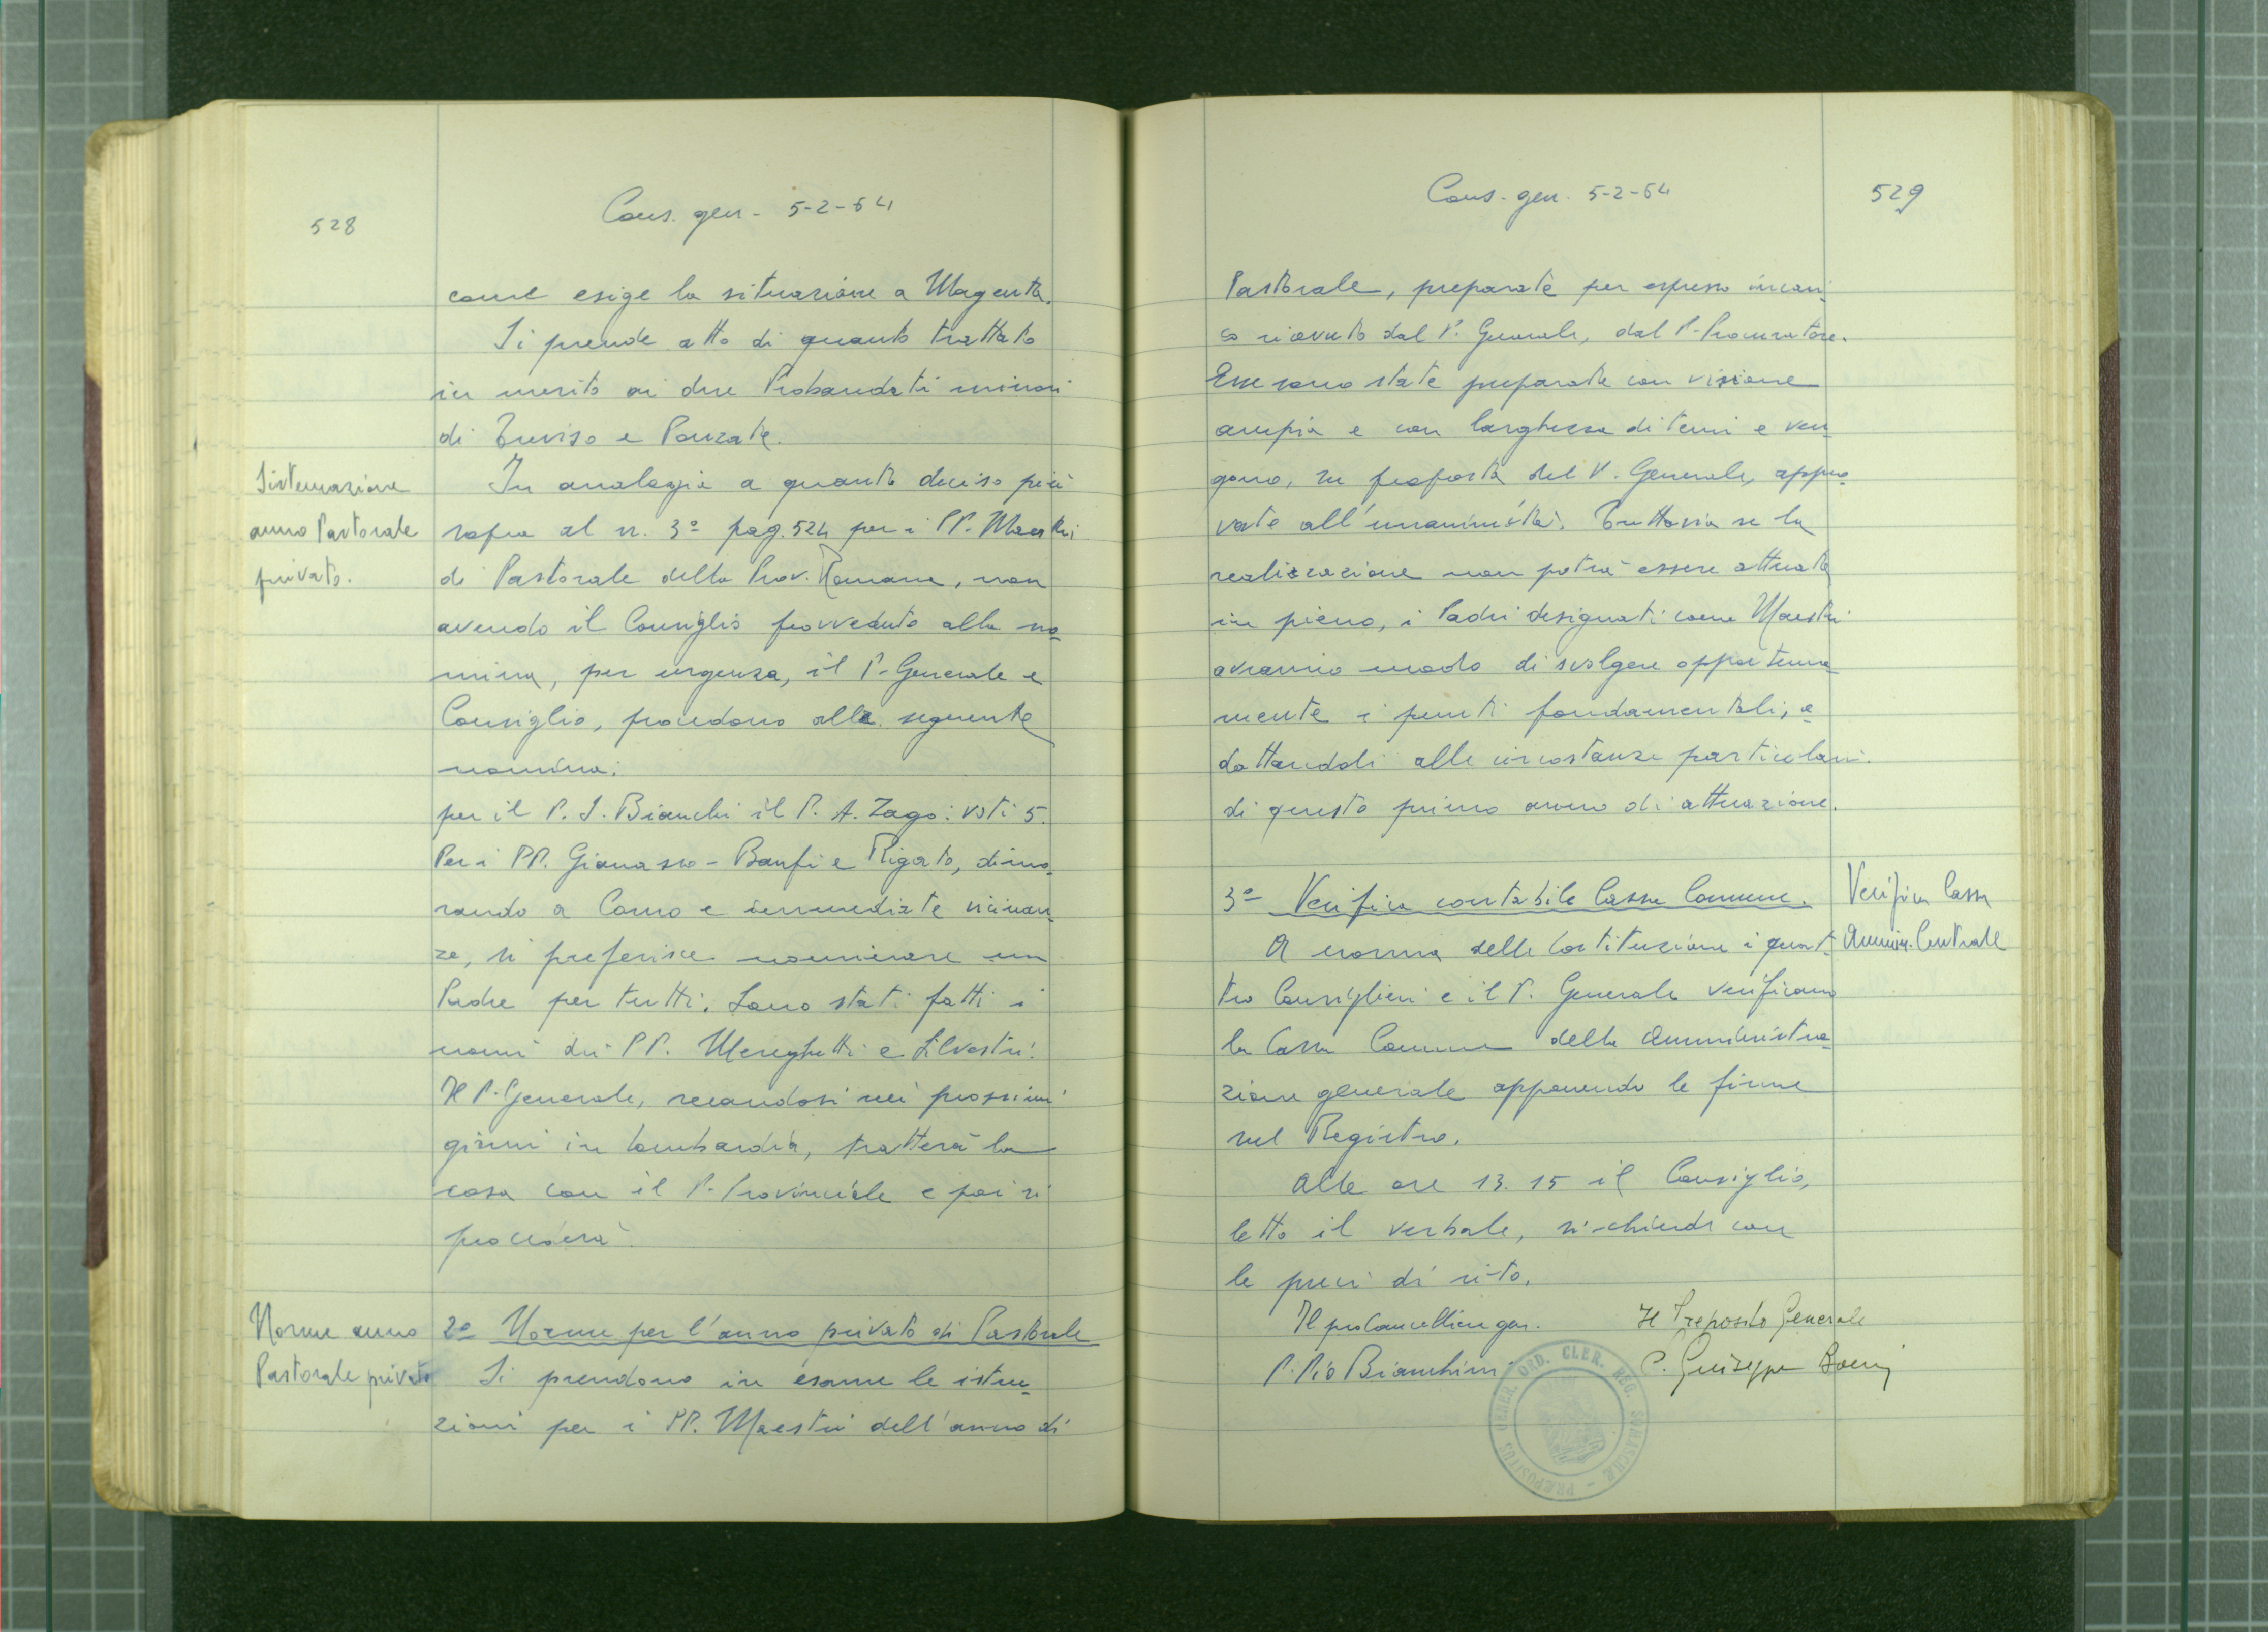 528
Cons. gen. - 5-2-64
come esige la situazione a Magenta.
Si prende atto di quanto trattato
in merito ai due Probandati minori
di Treviso e Ponzate.
Sistemazione
anno Pastorale
privato.
In analogia a quanto deciso più
sopra al n. 3º pag. 524 per i PP. Maestri
di Pastorale della Prov. Romana, non
avendo il Consiglio provveduto alla no-
mina, per urgenza, il P. Generale e
Consiglio, procedono alla seguente
nomina:
per il P. S. Bianchi il P. A. Zago: voti 5.
Per i PP. Gianasso - Banfi e Rigato, dimo-
rando a Como e immediate vicinan-
ze, si preferisce nominare un
Padre per tutti. Sono stati fatti i
nomi dei PP. Mereghetti e Silvestri.
Il P. Generale, recandosi nei prossimi
giorni in Lombardia, tratterà la
cosa con il P. Provinciale e poi si
procederà.
Norme anno
Pastorale privato
2º Norme per l'anno privato di Pastorale
Si prendono in esame le istru-
zioni per i PP. Maestri dell'anno di
Cons. gen. 5-2-64
529
Pastorale, preparate per espresso incari-
co ricevuto dal P. Generale, dal P. Procuratore.
Esse sono state preparate con visione
ampia e con larghezza di temi e ven-
gono, su proposta del P. Generale, appro-
vate all'unanimità. Tuttavia se la
realizzazione non potrà essere attuata
in pieno, i Padri designati come Maestri
avranno modo di svolgere opportuna-
mente i punti fondamentali, a-
dattandoli alle circostanze particolari
di questo primo anno di attuazione.
3º Verifica contabile Cassa Comune.
Verifica Cassa
Ammin. Centrale
A norma delle Costituzione i quat-
tro Consiglieri e il P. Generale verificano
la Cassa Comune della Amministra-
zione generale apponendo le firme
sul Registro.
Alle ore 13.15 il Consiglio,
letto il verbale, si chiude con
le preci di rito.
Il pro Cancelliere gen.
Il Preposito Generale
P. Pio Bianchini
P. Giuseppe Boeri
PRÆPOSITUS GENER. ORD. CLER. REG. SOMASCHÆ